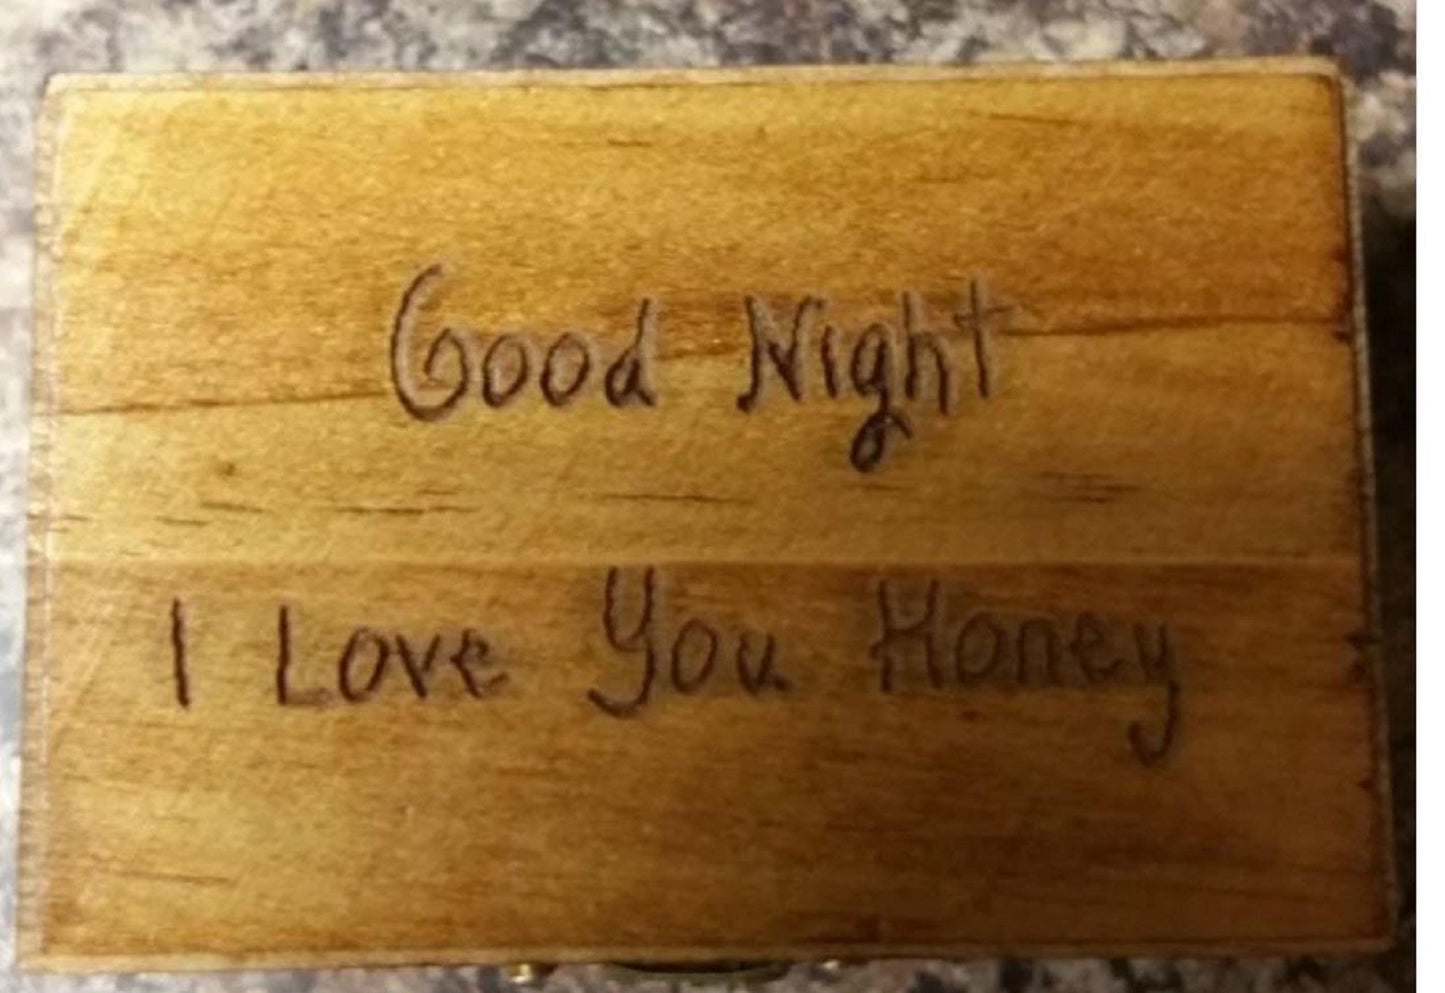 Good Night
I Love You Honey